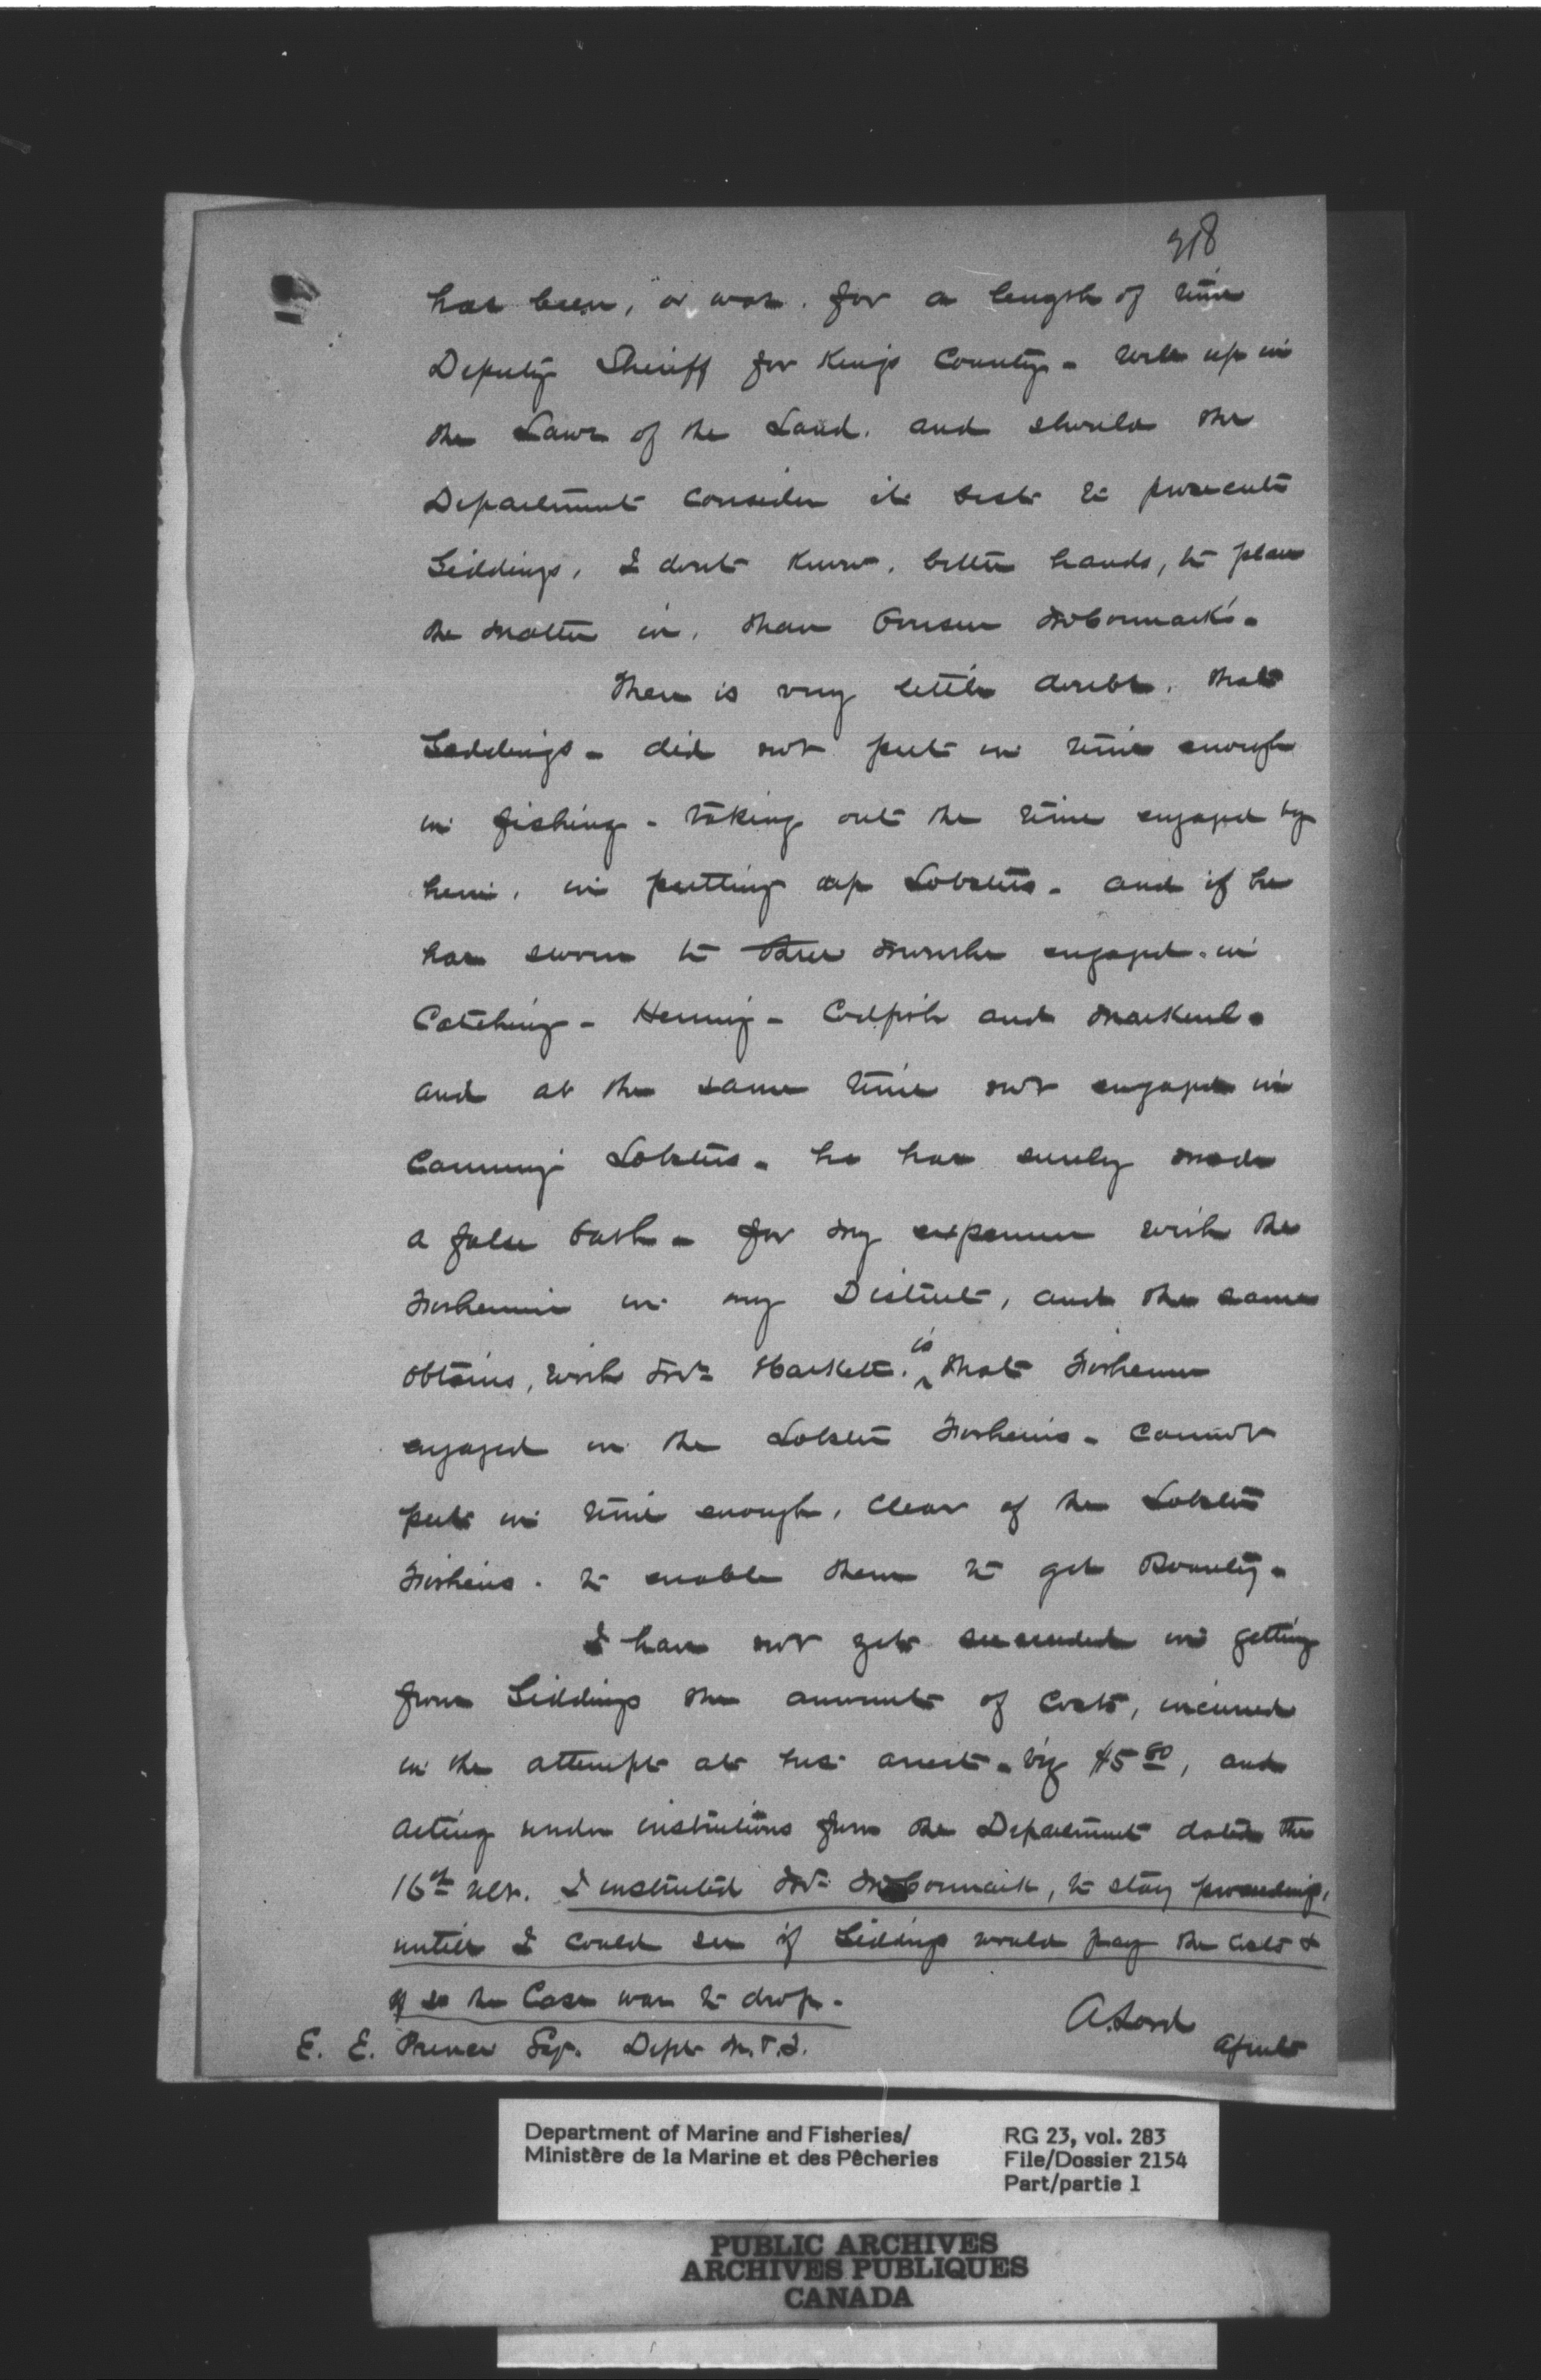 318
has been, or was. for a length of time
Deputy Sheriff for Kings County - well up in
the Laws of the Land. and should the
Department consider it best to prosecute
Giddings, I dont know. better hands, to place
the matter in, than McCormack's.
There is very little doubt. that
Giddings - did not put in time enough
in fishing - taking out the time engaged by
him, in putting up Lobsters - and if he
has sworn to three months engaged in
Catching - Herring - Codfish and Mackerel -
and at the same time not engaged in
Canning Lobsters - he has surely made
a false Oath - for my experience with the
Fishermen in my District, and the same
obtains, with Mr Hackett. is that Fishermen
engaged in the Lobster Fisheries - cannot
put in time enough, clear of the Lobster
Fisheries. to enable them to get Bounty -
I have not yet succeeded in getting
from Giddings the amount of Costs, incurred
in the attempt at his arrest - viz $5 80, and
acting under instructions from the Department dated the
16th ult. I instructed Mr McCormack, to stay proceedings,
until I could see if Giddings would pay the Costs &
if so the Case was to drop -
A. Lord
Agent
E. E. Prince Esq. Dept M. & F.
Department of Marine and Fisheries/
Ministère de la Marine et des Pêcheries
RG 23, vol. 283
File/Dossier 2154
Part/partie 1
PUBLIC ARCHIVES
ARCHIVES PUBLIQUES
CANADA